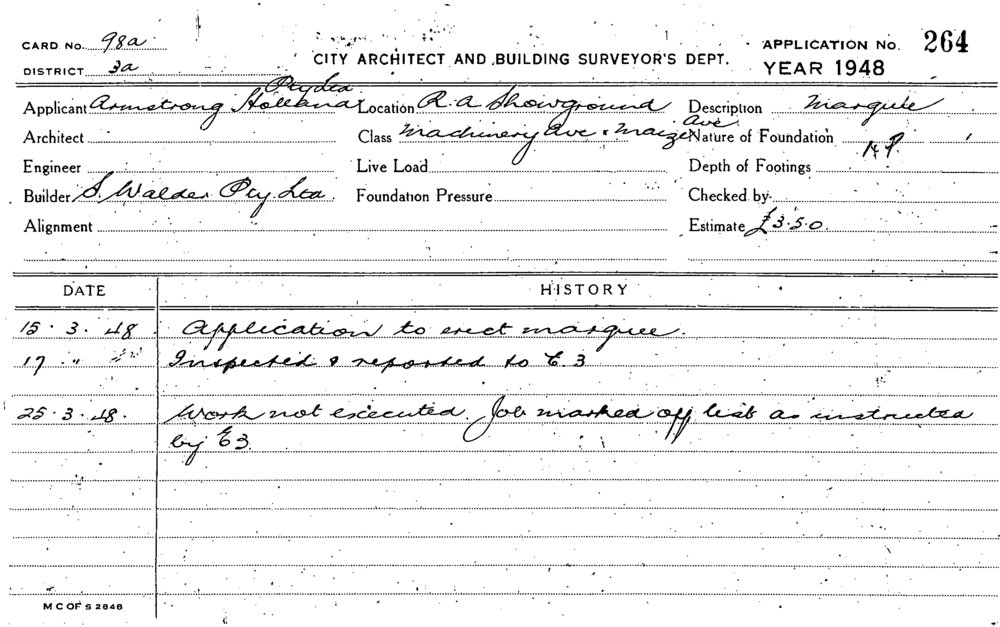 CARD No. 98a
DISTRICT 3a
CITY ARCHITECT AND BUILDING SURVEYOR'S DEPT.
APPLICATION No. 264
YEAR 1948
Applicant Armstrong Holland Pty Ltd
Location R.A. Showground
Description Marquee
Architect
Class Machinery Ave & Maize Ave
Nature of Foundation
Engineer
Live Load
Depth of Footings
Builder S. Walder Pty. Ltd
Foundation Pressure
Checked by
Alignment
Estimate £3.5.0.
DATE HISTORY
15.3.48 Application to erect marquee.
17 " " Inspected & reported to E.3
25.3.48. Work not executed. Job marked off list as instructed
by E3.
M C OF S 2848